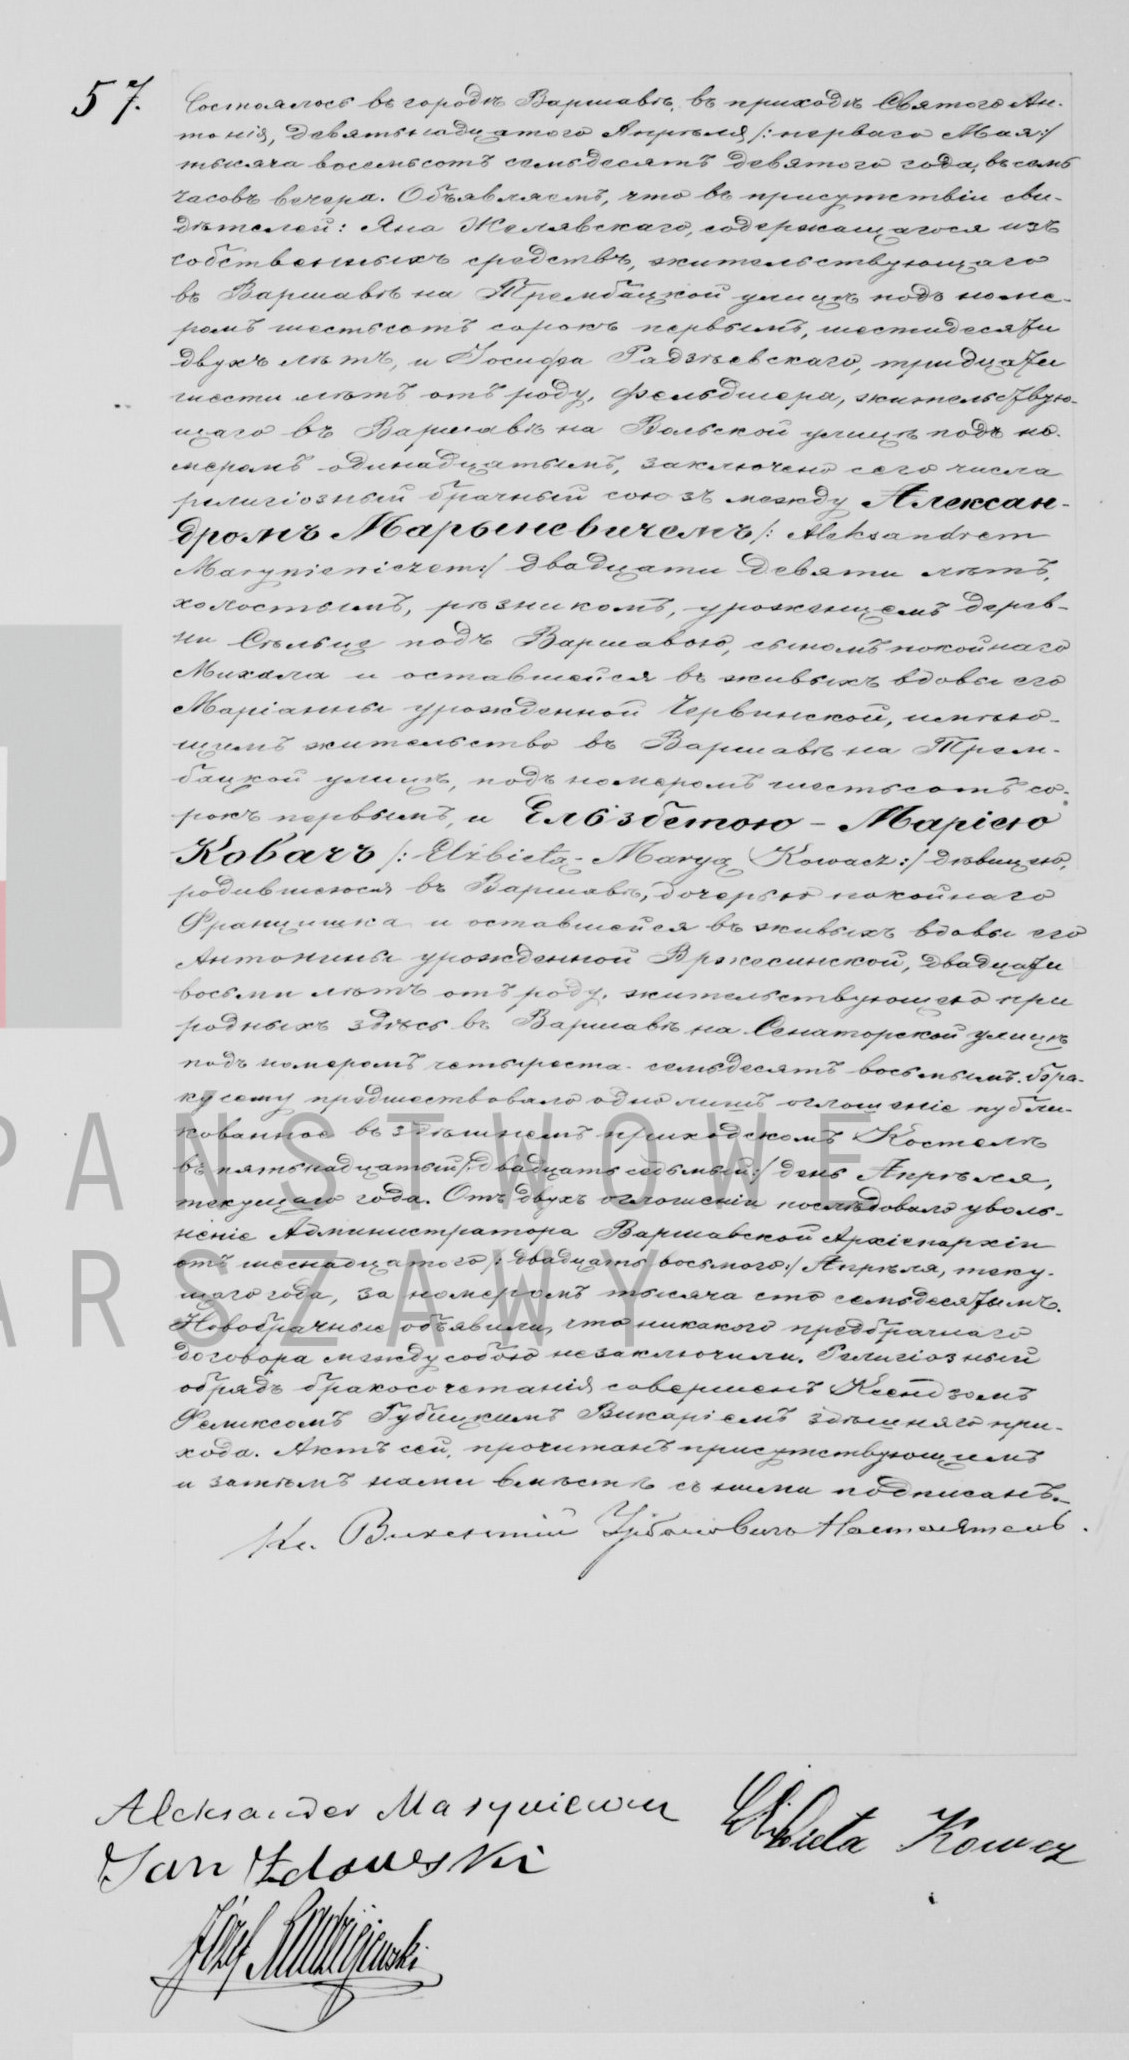 57.
Состоялось въ городѣ Варшавѣ, въ приходѣ Святого Ан-
тонія, девятьнадцатого Апрѣля /: перваго Мая :/
тысяча восемьсотъ семьдесятъ девятого года, въ семь
часовъ вечера. Объявляемъ, что въ присутствіи сви-
дѣтелей: Яна Желявскаго, содержащагося изъ
собственныхъ средствъ, жительствующаго
въ Варшавѣ на Трембацкой улицѣ подъ номе-
ромъ шестьсотъ сорокъ первымъ, шестидесяти
двухъ лѣтъ, и Іосифа Радзѣевскаго, тридцати
шести лѣтъ отъ роду, фельдшера, жительствую-
щаго въ Варшавѣ на Вольской улицѣ подъ но-
меромъ одинадцатымъ, заключенъ сего числа
религіозный брачный союзъ между Алексан-
дромъ Марыневичемъ /: Aleksandrem
Maryniewiczem :/ двадцати девяти лѣтъ,
холостымъ, рѣзникомъ, урожнцемъ дерев-
ни Сѣльце подъ Варшавою, сыномъ покойнаго
Михала и оставшейся въ живыхъ вдовы его
Маріанны урожденной Червинской, имѣю-
щимъ жительство въ Варшавѣ на Трем-
бацкой улицѣ, подъ номеромъ шестьсотъ со-
рокъ первымъ, и Ельзбетою - Маріею
Ковачъ /: Elżbietą - Maryą Kowacz :/ дѣвицею,
родившеюся въ Варшавѣ, дочерью покойнаго
Францишка и оставшейся въ живыхъ вдовы его
Антонины урожденной Вржесинской, двадцати
восьми лѣтъ отъ роду, жительствующею при
родныхъ здѣсь въ Варшавѣ на Сенаторской улицѣ
подъ номеромъ четыреста семьдесятъ восьмымъ. Бра-
ку сему предшествовало одно лишъ оглошеніе публи-
кованное въ здѣшнемъ приходскомъ Костелѣ
въ пятьнадцатый /: двадцать седьмый :/ день Апрѣля,
текущаго года. Отъ двухъ оглошеніи послѣдовало уволь-
неніе Администратора Варшавской Архіепархіи
отъ шеснадцатого /: двадцать восьмого :/ Апрѣля, теку-
щаго года, за номеромъ тысяча сто семьдесятымъ.
Новобрачные объявили, что никакого предбрачнаго
договора между собою незаключили. Религіозный
обрядъ бракосочетанія совершенъ Ксендзомъ
Феликсомъ Губицкимъ Викаріемъ здѣшняго при-
хода. Актъ сей, прочитанъ присутствующимъ
и затѣмъ нами вмѣстѣ съ ними подписанъ.
Кс. Викентій Настоятель.
PAŃSTWOWE
ARSZAWY
Aleksander Maryniewicz
Elżbieta Kowacz
Jan
Józef Radziejewski